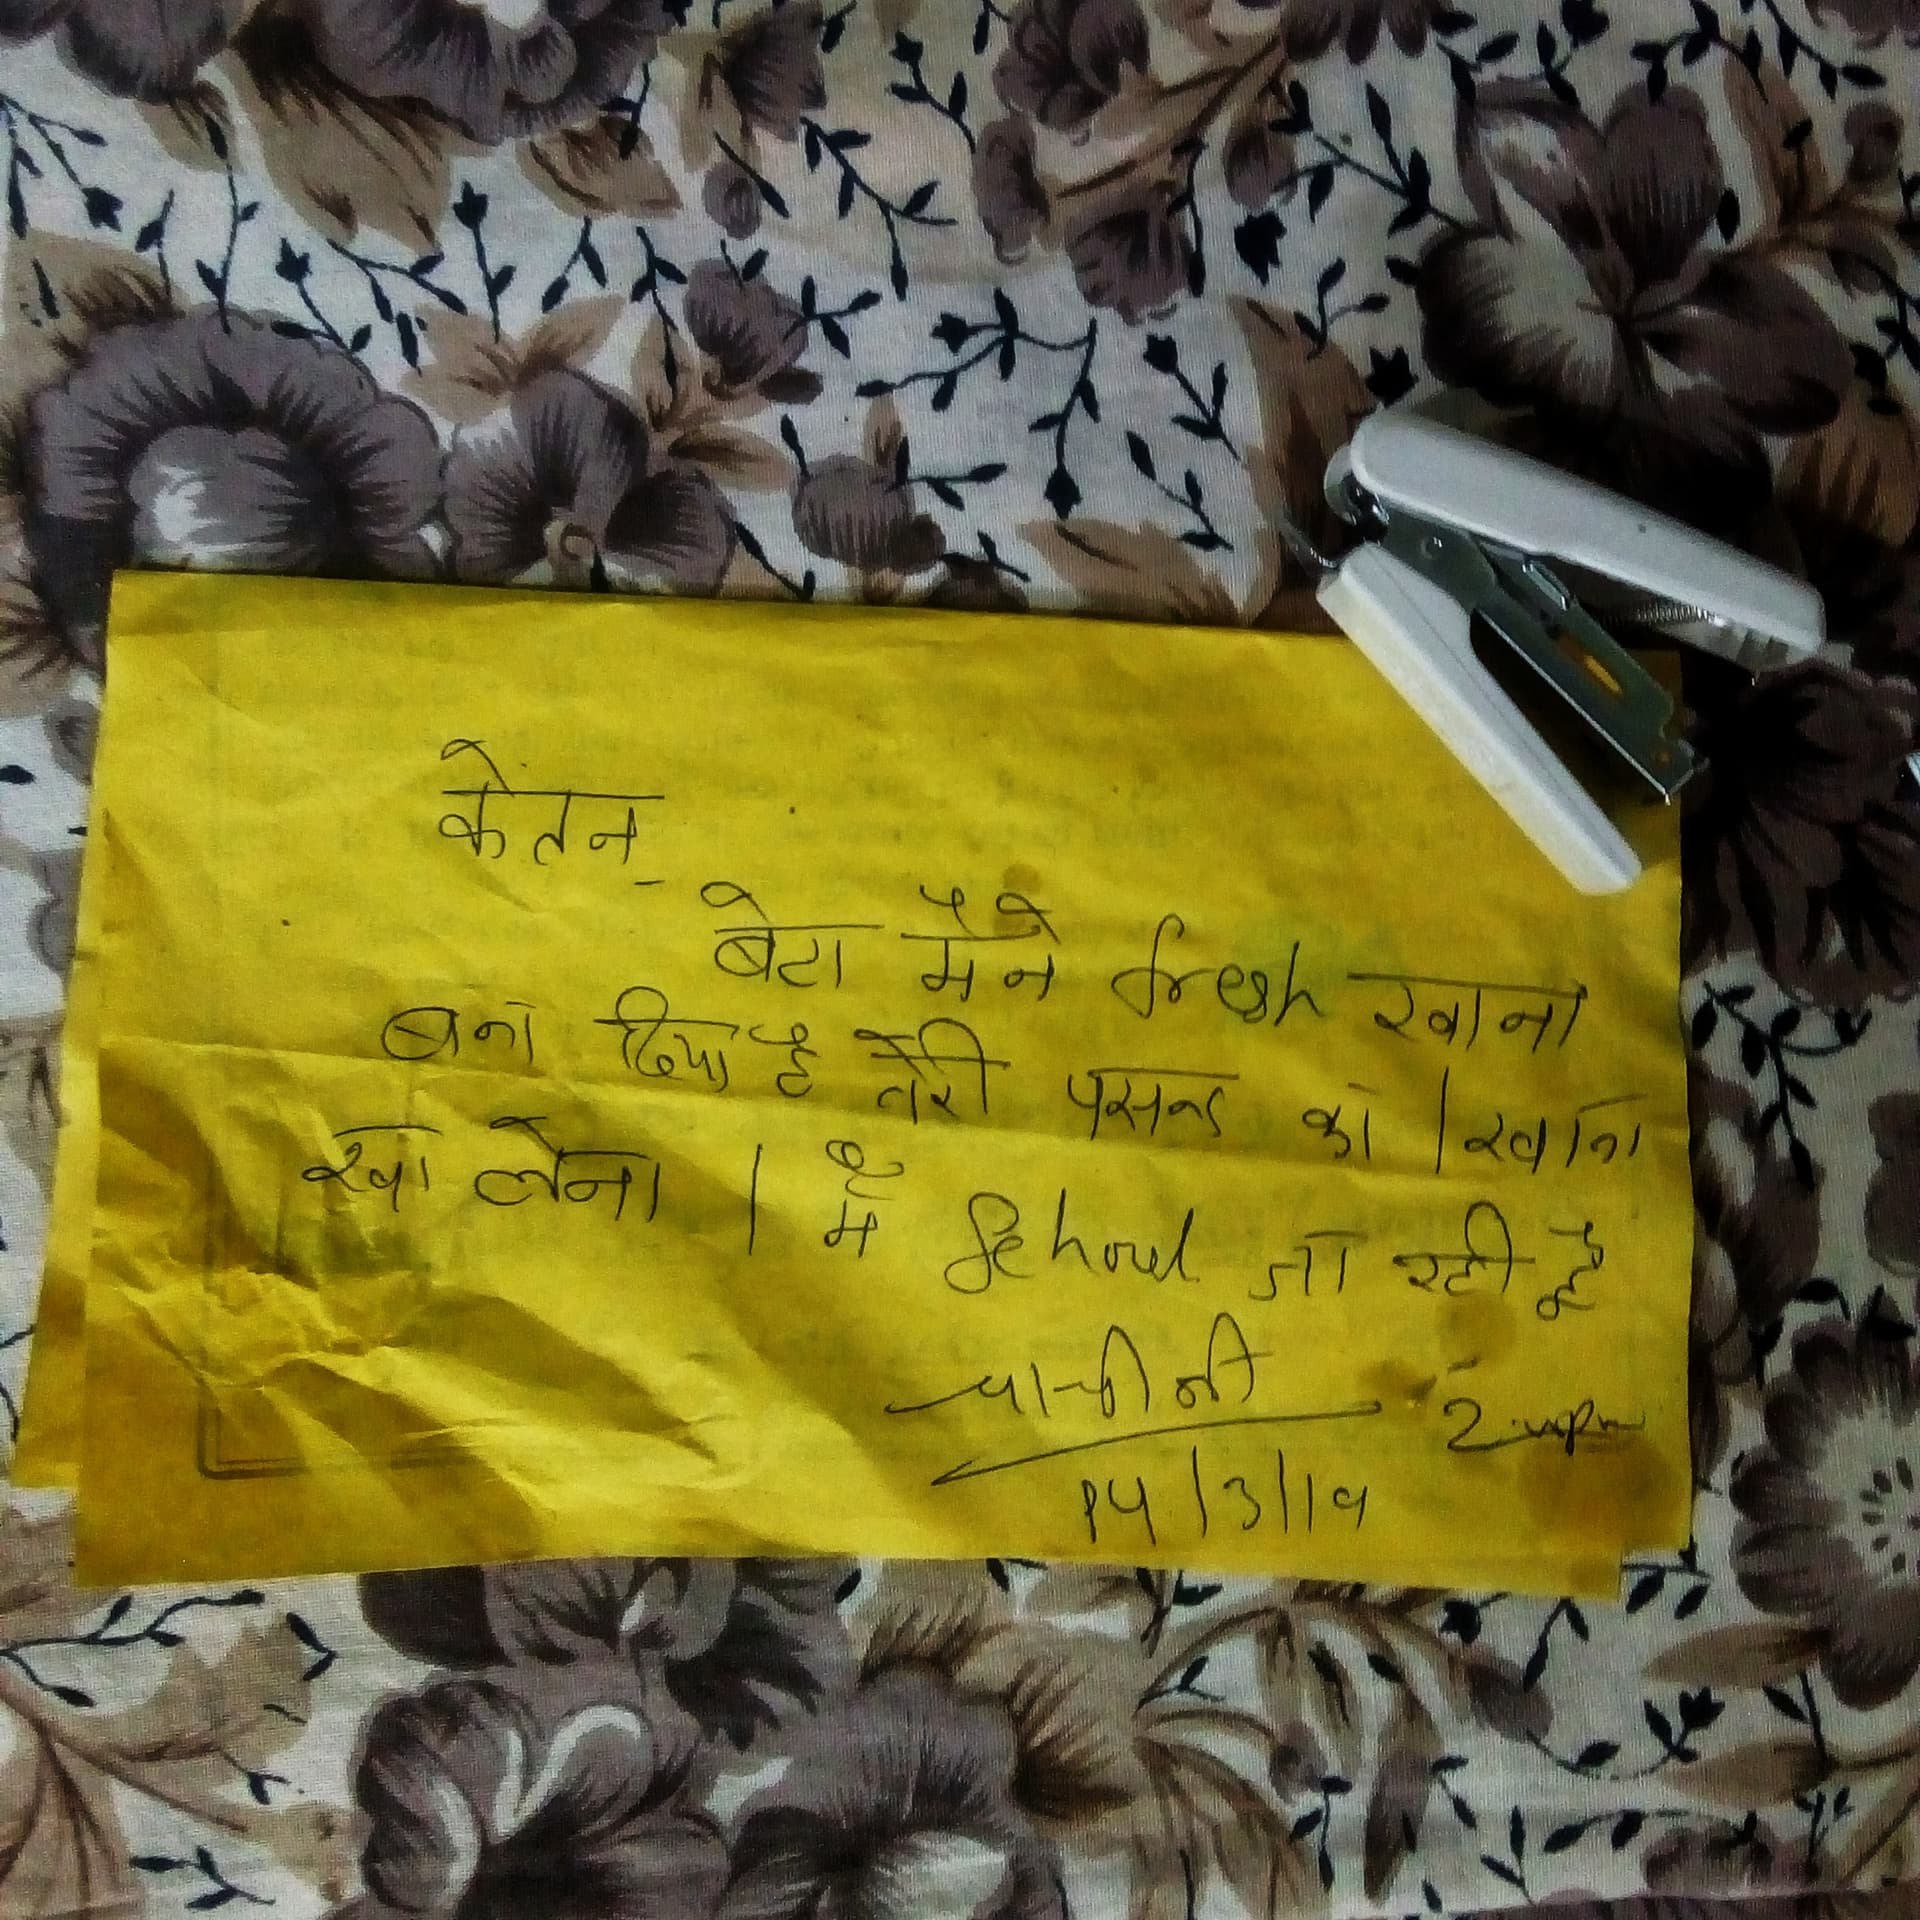 केतन
बेटा मैंने fresh खाना
बना दिया है तेरी पसन्द का । खाना
खा लेना । मैं School जा रही हूँ
14/3/19